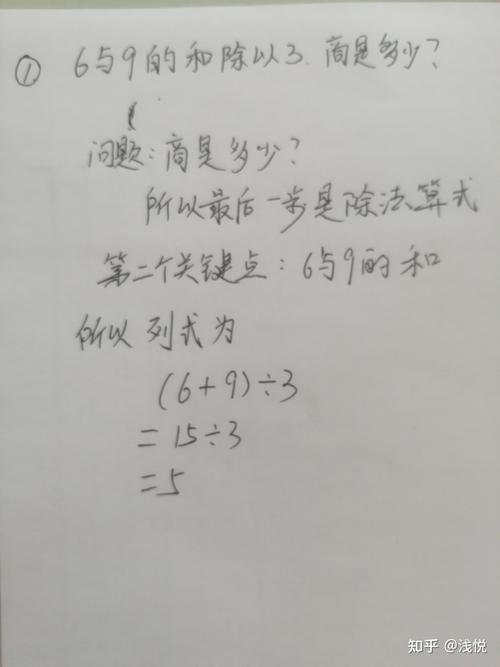 ① 6与9的和除以3.商是多少?
问题:商是多少?
所以最后一步是除法算式
第二个关键点:6与9的和
所以列式为
(6+9)÷3
=15÷3
=5
知乎 @浅悦